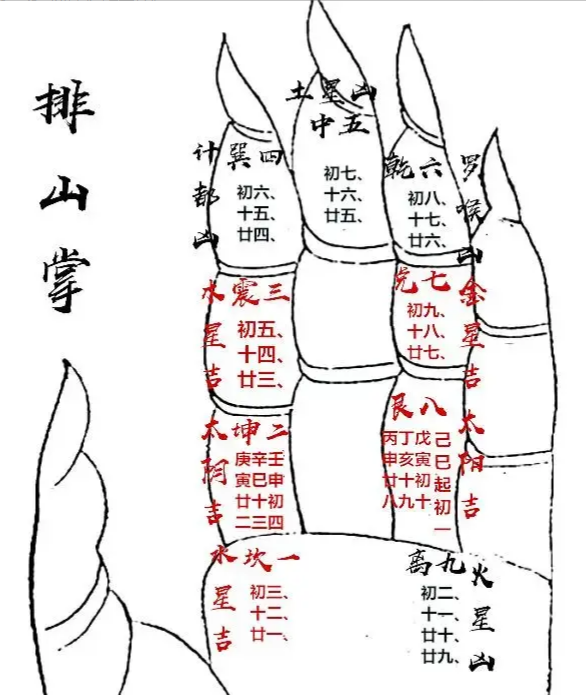 排山掌
计都凶
巽四
初六、
十五、
廿四、
土星凶
中五
初七、
十六、
廿五、
乾六
罗喉凶
初八、
十七、
廿六、
水星吉
震三
初五、
十四、
廿三、
兑七
金星吉
初九、
十八、
廿七、
太阴吉
坤二
壬申初四
辛巳十三
庚寅廿二
艮八
太阳吉
己巳起初一
戊寅初十
丁亥十九
丙申廿八
水星吉
坎一
初三、
十二、
廿一、
离九
火星凶
初二、
十一、
廿十、
廿九、